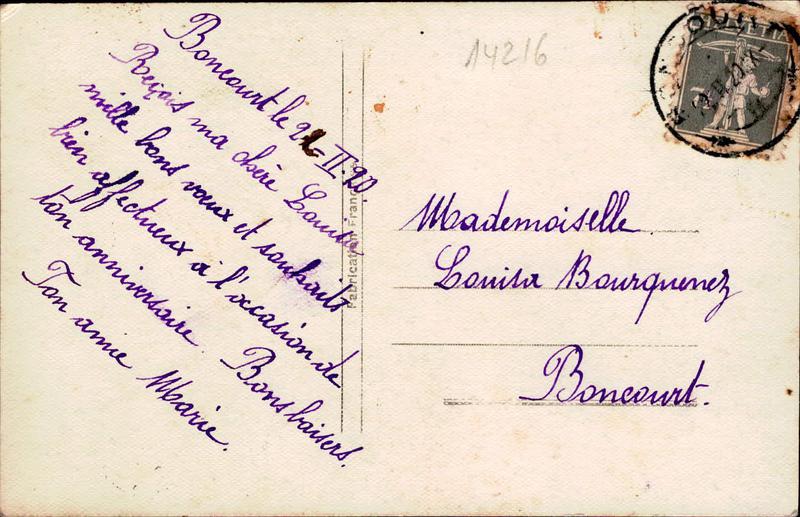 14216
HELVETIA
Boncourt le 21 II. 20.
Reçois ma chère Louisa
mille bons vœux et souhaits
bien affectueux à l'occasion de
ton anniversaire. Bons baisers.
Ton amie Marie.
Fabrication Fran
Mademoiselle
Louisa Bourquenez
Boncourt.